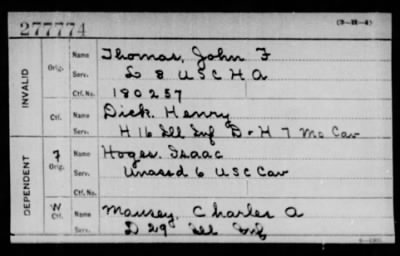 277774 (3-21-4)
INVALID
Orig. Name Thomas, John F
Serv. L 8 U S C H A
Ctf. No. 180257
Ctf. Name Dick, Henry
Serv. H 16 Ill Inf D + H 7 Mo Cav
DEPENDENT
F Orig. Name Hoges, Isaac
Serv. Unassd 6 U S C Cav
Ctf. No.
W Ctf. Name Mausey, Charles A
Serv. D 29 Ill Inf